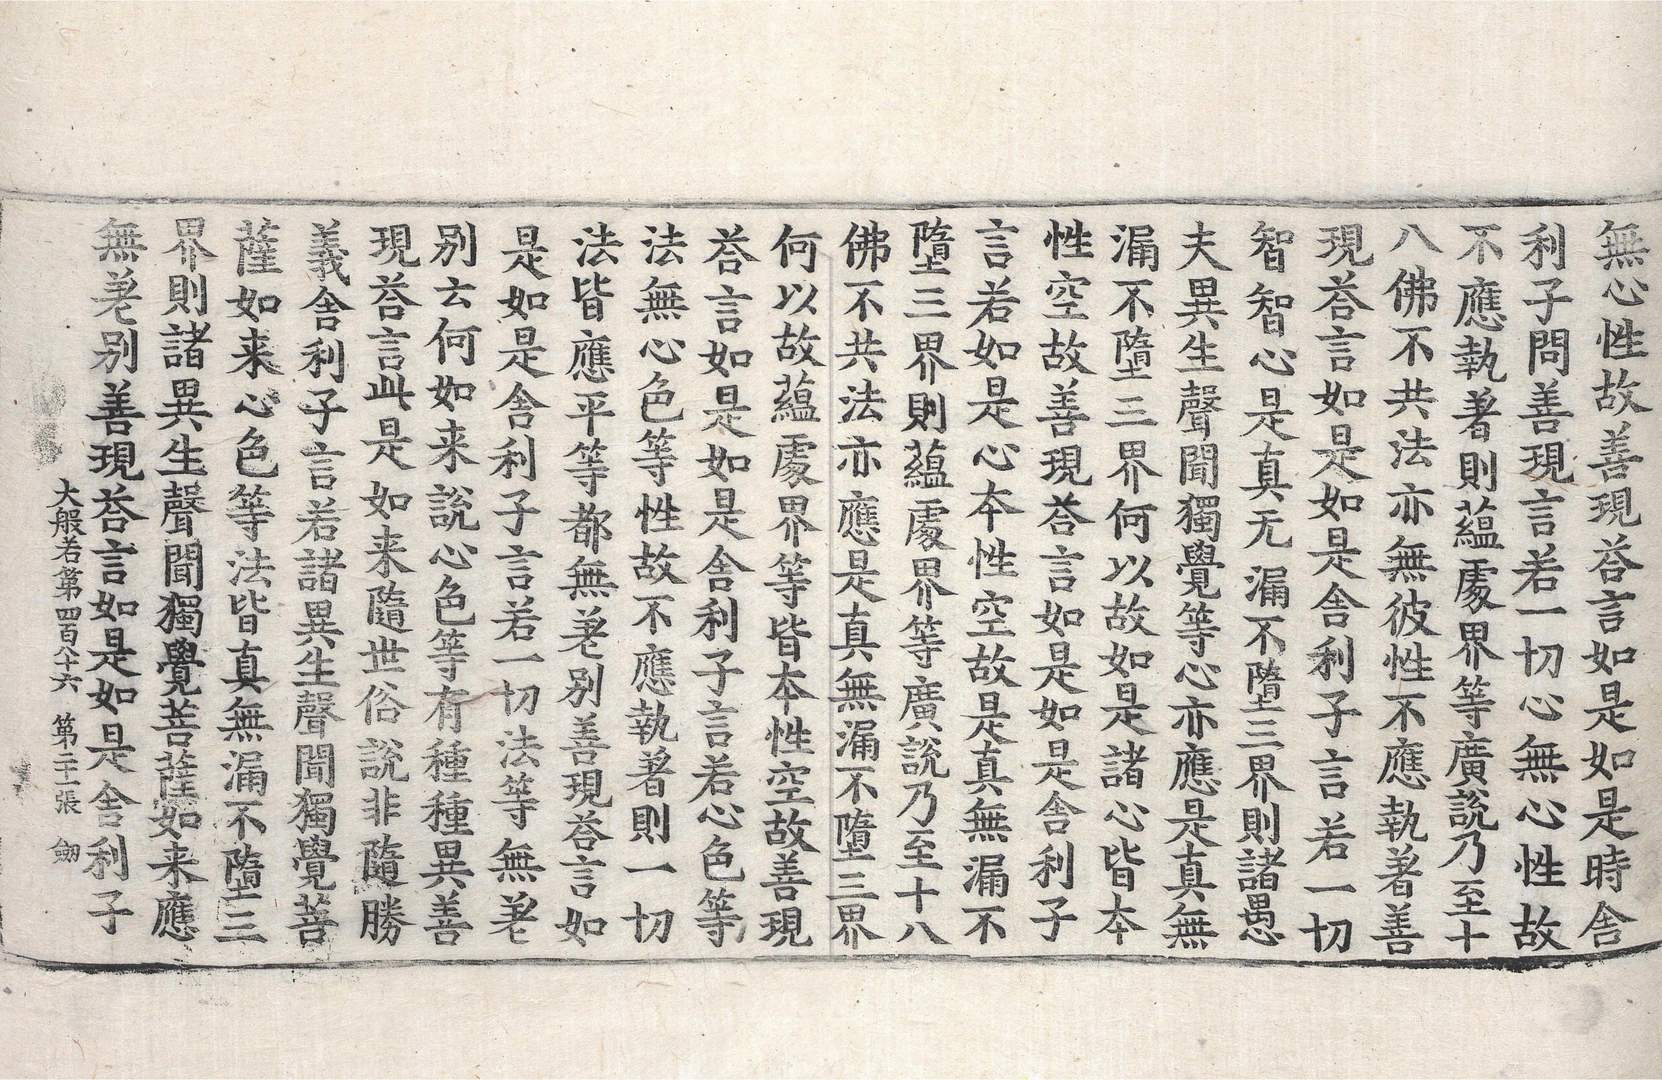 無心性故善現荅言如是如是時舍
利子問善現言若一切心無心性故
不應執著則蘊處界等廣說乃至十
八佛不共法亦無彼性不應執著善
現荅言如是如是舍利子言若一切
智智心是真无漏不墮三界則諸愚
夫異生聲聞獨覺等心亦應是真無
漏不墮三界何以故如是諸心皆本
性空故善現荅言如是如是舍利子
言若如是心本性空故是真無漏不
墮三界則蘊處界等廣說乃至十八
佛不共法亦應是真無漏不墮三界
何以故蘊處界等皆本性空故善現
荅言如是如是舍利子言若心色等
法無心色等性故不應執著則一切
法皆應平等都無差別善現荅言如
是如是舍利子言若一切法等無差
別云何如来說心色等有種種異善
現荅言此是如来隨世俗說非隨勝
義舍利子言若諸異生聲聞獨覺菩
薩如来心色等法皆真無漏不墮三
界則諸異生聲聞獨覺菩薩如来應
無差別善現荅言如是如是舍利子
大般若第四百八十六 第二十一張 劒